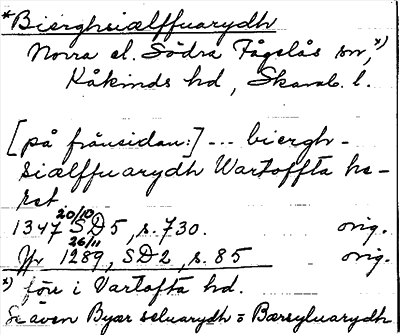 *Bierghsiælffuarydh
Norra el. Södra Fågelås sn,*)
Kåkinds hd, Skarab. l.
[på frånsidan:] --- biergh-
siælffuarydh Wartoffta hæ-
ret
1347 20/10 SD5, s. 730. orig.
Yr 1289 26/11, SD2, s. 85 orig.
*) förr i Vartofta hd.
Se även Byær seluarydh = Bærsyluarydh